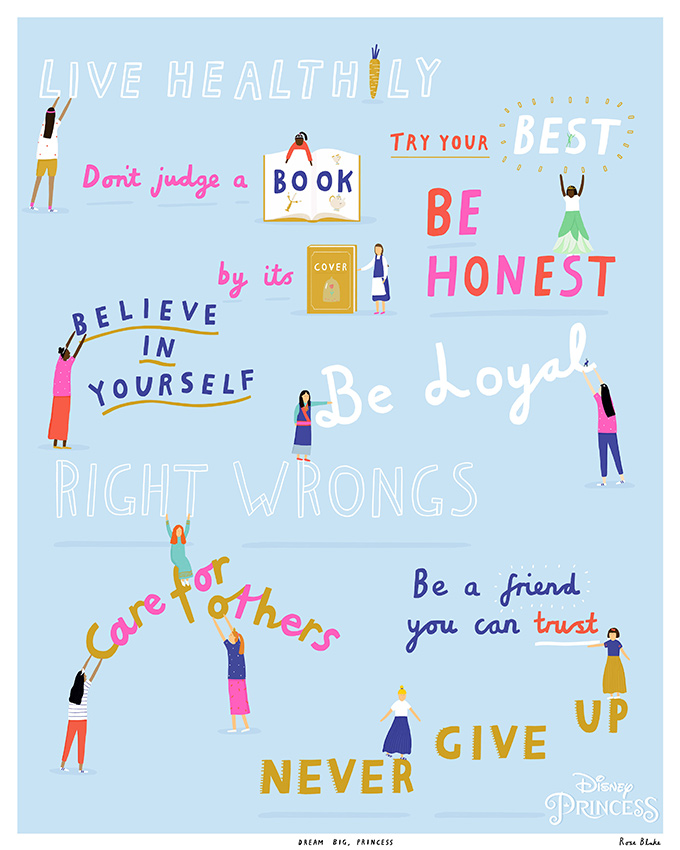 LIVE HEALTHILY
TRY YOUR BEST
Don't judge a BOOK
BE
HONEST
by its COVER
BELIEVE
IN
YOURSELF
Be Loyal
RIGHT WRONGS
Care for others
Be a friend
you can trust
NEVER GIVE UP
Disney
PRINCESS
DREAM BIG, PRINCESS
Rose Blake